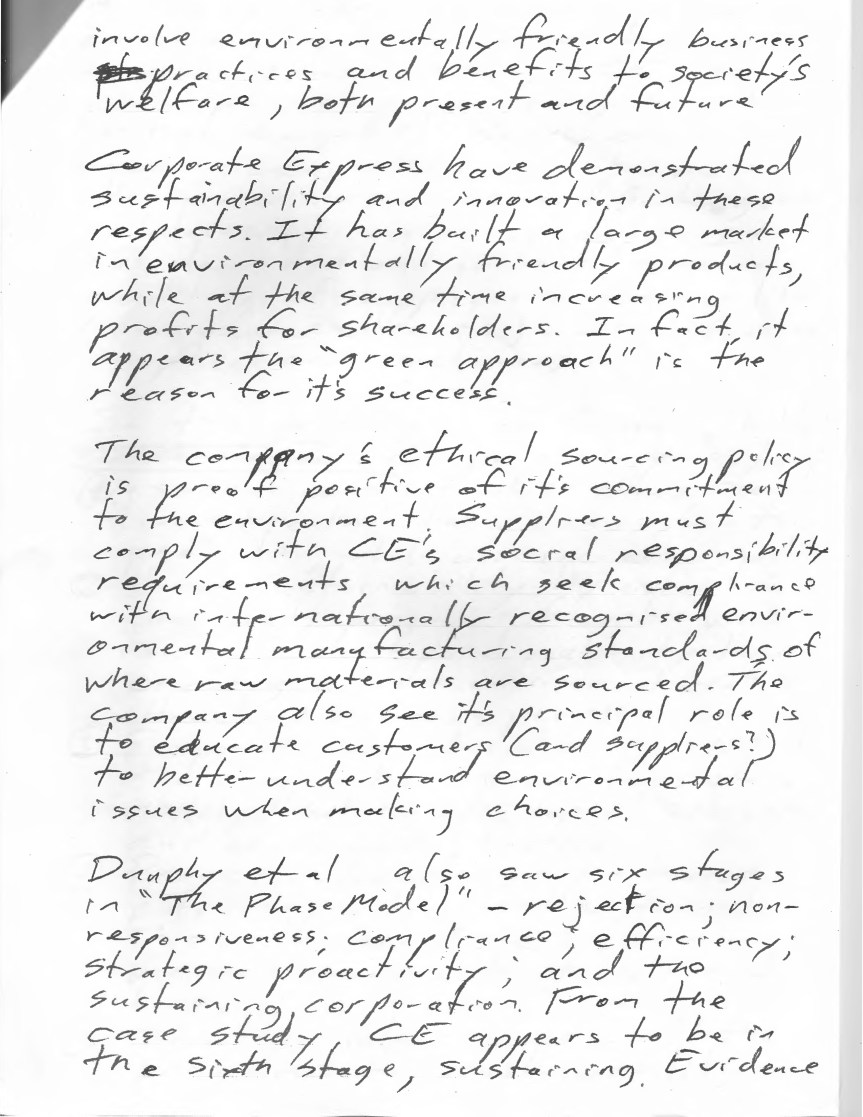 involve environmentally friendly business
practices and benefits to society's
welfare, both present and future
Corporate Express have demonstrated
sustainability and innovation in these
respects. It has built a large market
in environmentally friendly products,
while at the same time increasing
profits for shareholders. In fact, it
appears the "green approach" is the
reason for it's success.
The company's ethical sourcing policy
is proof positive of it's commitment
to the environment. Suppliers must
comply with CE's social responsibility
requirements, which seek compliance
with internationally recognised envir-
onmental manufacturing standards of
where raw materials are sourced. The
company also see it's principal role is
to educate customers (and suppliers?)
to better understand environmental
issues when making choices.
Dunphy et al also saw six stages
in "The Phase Model" - rejection; non-
responsiveness; compliance; efficiency;
strategic proactivity; and the
sustaining corporation. From the
case study, CE appears to be in
the sixth stage, sustaining. Evidence